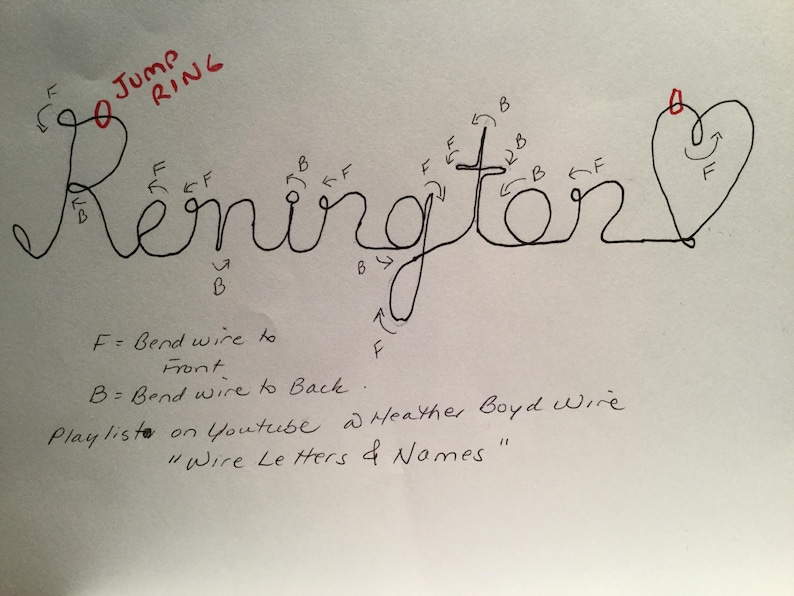 JUMP
RING
F
B
F
F
B
B
F
F
F
B
B
F
B
F
F
Renington
B
F
F = Bend wire to
Front
B = Bend wire to Back.
Playlist on Youtube @ Heather Boyd Wire
"Wire Letters & Names"